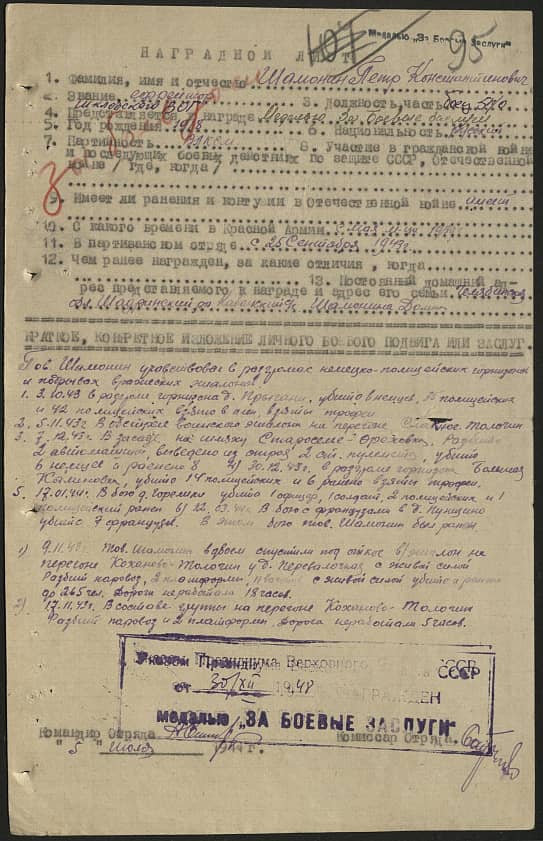 107
Медалью „За Боевые Заслуги"
95
НАГРАДНОЙ ЛИСТ
1. Фамилия, имя и отчество Шамонин Петр Константинович
2. Звание 3. Должность, часть
Шкловского ВОГ
4. Представляется к награде Медалью За боевые заслуги
5. Год рождения 6. Национальность русский
7. Партийность ВЛКСМ 8. Участие в гражданской войне
и последующих боевых действиях по защите СССР, Отечественной
войне /где, когда/
9. Имеет ли ранения и контузии в Отечественной войне имеет
10. С какого времени в Красной Армии
11. В партизанском отряде с 25 Сентября 1943г.
12. Чем ранее награжден, за какие отличия, когда
13. Постоянный домашний ад-
рес представляемого к награде и адрес его семьи
Шамонина
КРАТКОЕ, КОНКРЕТНОЕ ИЗЛОЖЕНИЕ ЛИЧНОГО БОЕВОГО ПОДВИГА ИЛИ ЗАСЛУГ.
Тов. Шамонин участвовал в разгромах немецко-полицейских гарнизонов
и подрывах вражеских эшелонов.
1. 3.10.43 в разгроме гарнизона д. убито немцев, полицейских
и 42 полицейских взято в плен, взяты трофеи
2. 5.11.43г. В обстреле воинского эшелона на перегоне Толочин
3. 7.12.43г. В засаде на шляху Староселье-Ореховка, Разбито
2 автомашины, выведено из строя 2 ст. пулемета, убито
6 немцев и ранено 8 4) 30.12.43г. в разгроме гарнизона Большая
убито 14 полицейских и 6 ранено взяты трофеи.
5. 17.01.44г. В бою д. убито 1 офицер, 1 солдат, 2 полицейских и 1
полицейский ранен. 6) 22.03.44г. В бою с французами в д.
убито 7 французов. В этом бою тов. Шамонин был ранен.
1) 9.11.43г. Тов. Шамонин вдвоем спустили под откос в/эшелон на
перегоне Коханово-Толочин у д. Переволочня с живой силой
Разбит паровоз, 2 платформы, с живой силой убито и ранено
до 265 чел. Дорога не работала 18 часов.
2) 17.11.43г. В составе группы на перегоне Коханово-Толочин
Разбит паровоз и 2 платформы, Дорога не работала 5 часов.
Указом Президиума Верховного СССР
от 30/XII 1948 НАГРАЖДЕН
медалью „ЗА БОЕВЫЕ ЗАСЛУГИ"
Командир Отряда Комиссар Отряда
"5 Июля 1944 г.